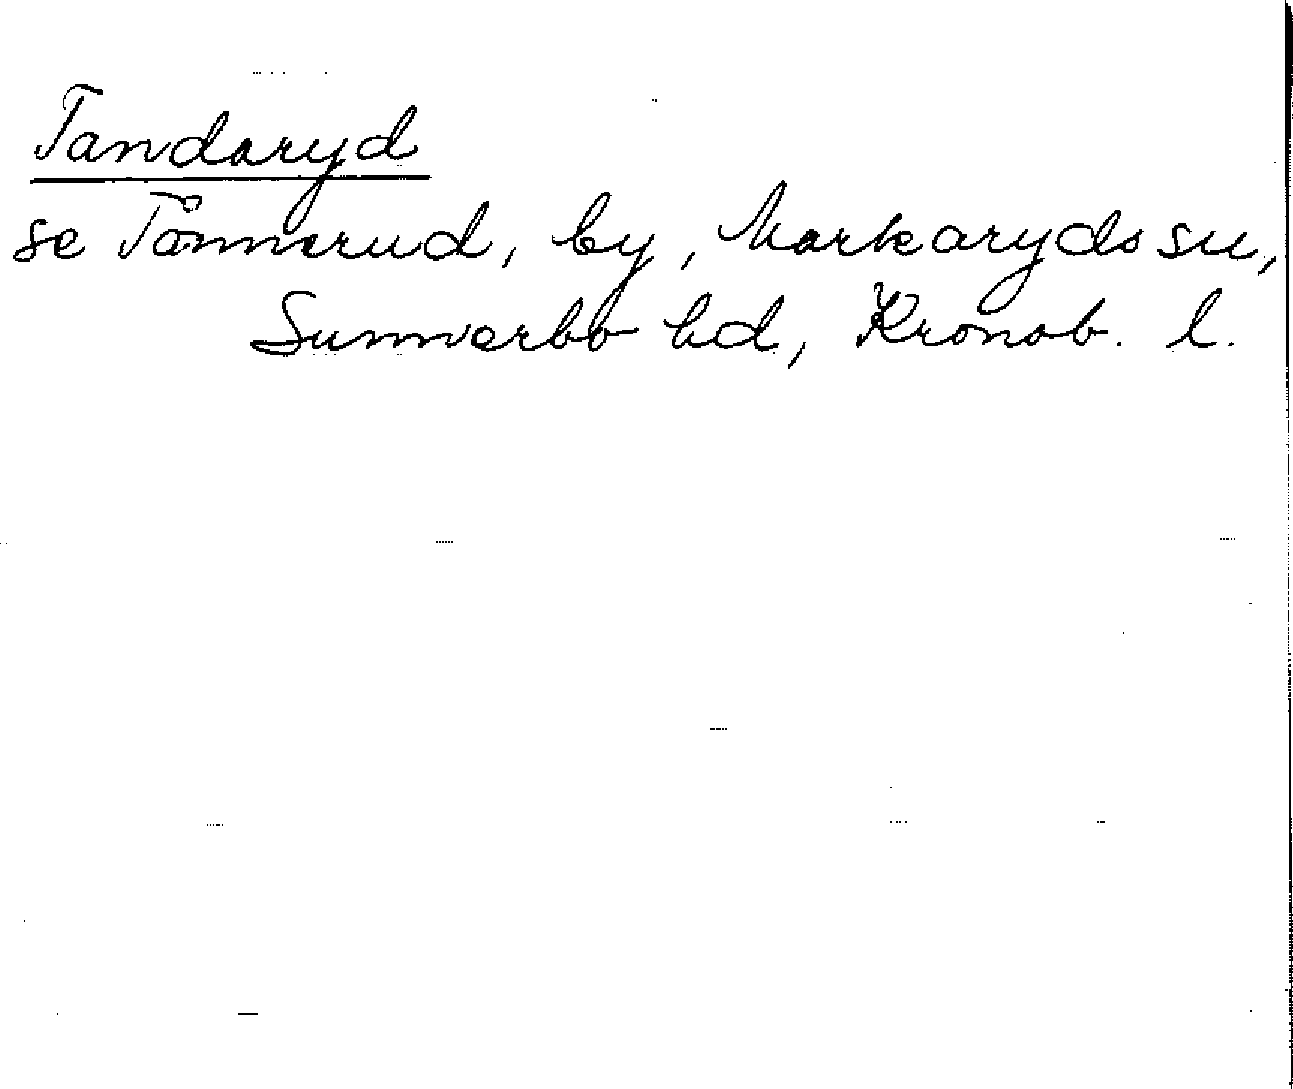 Tandaryd
se Tånnerud, by, Markaryds sn,
Sunnerbo hd, Kronob. l.